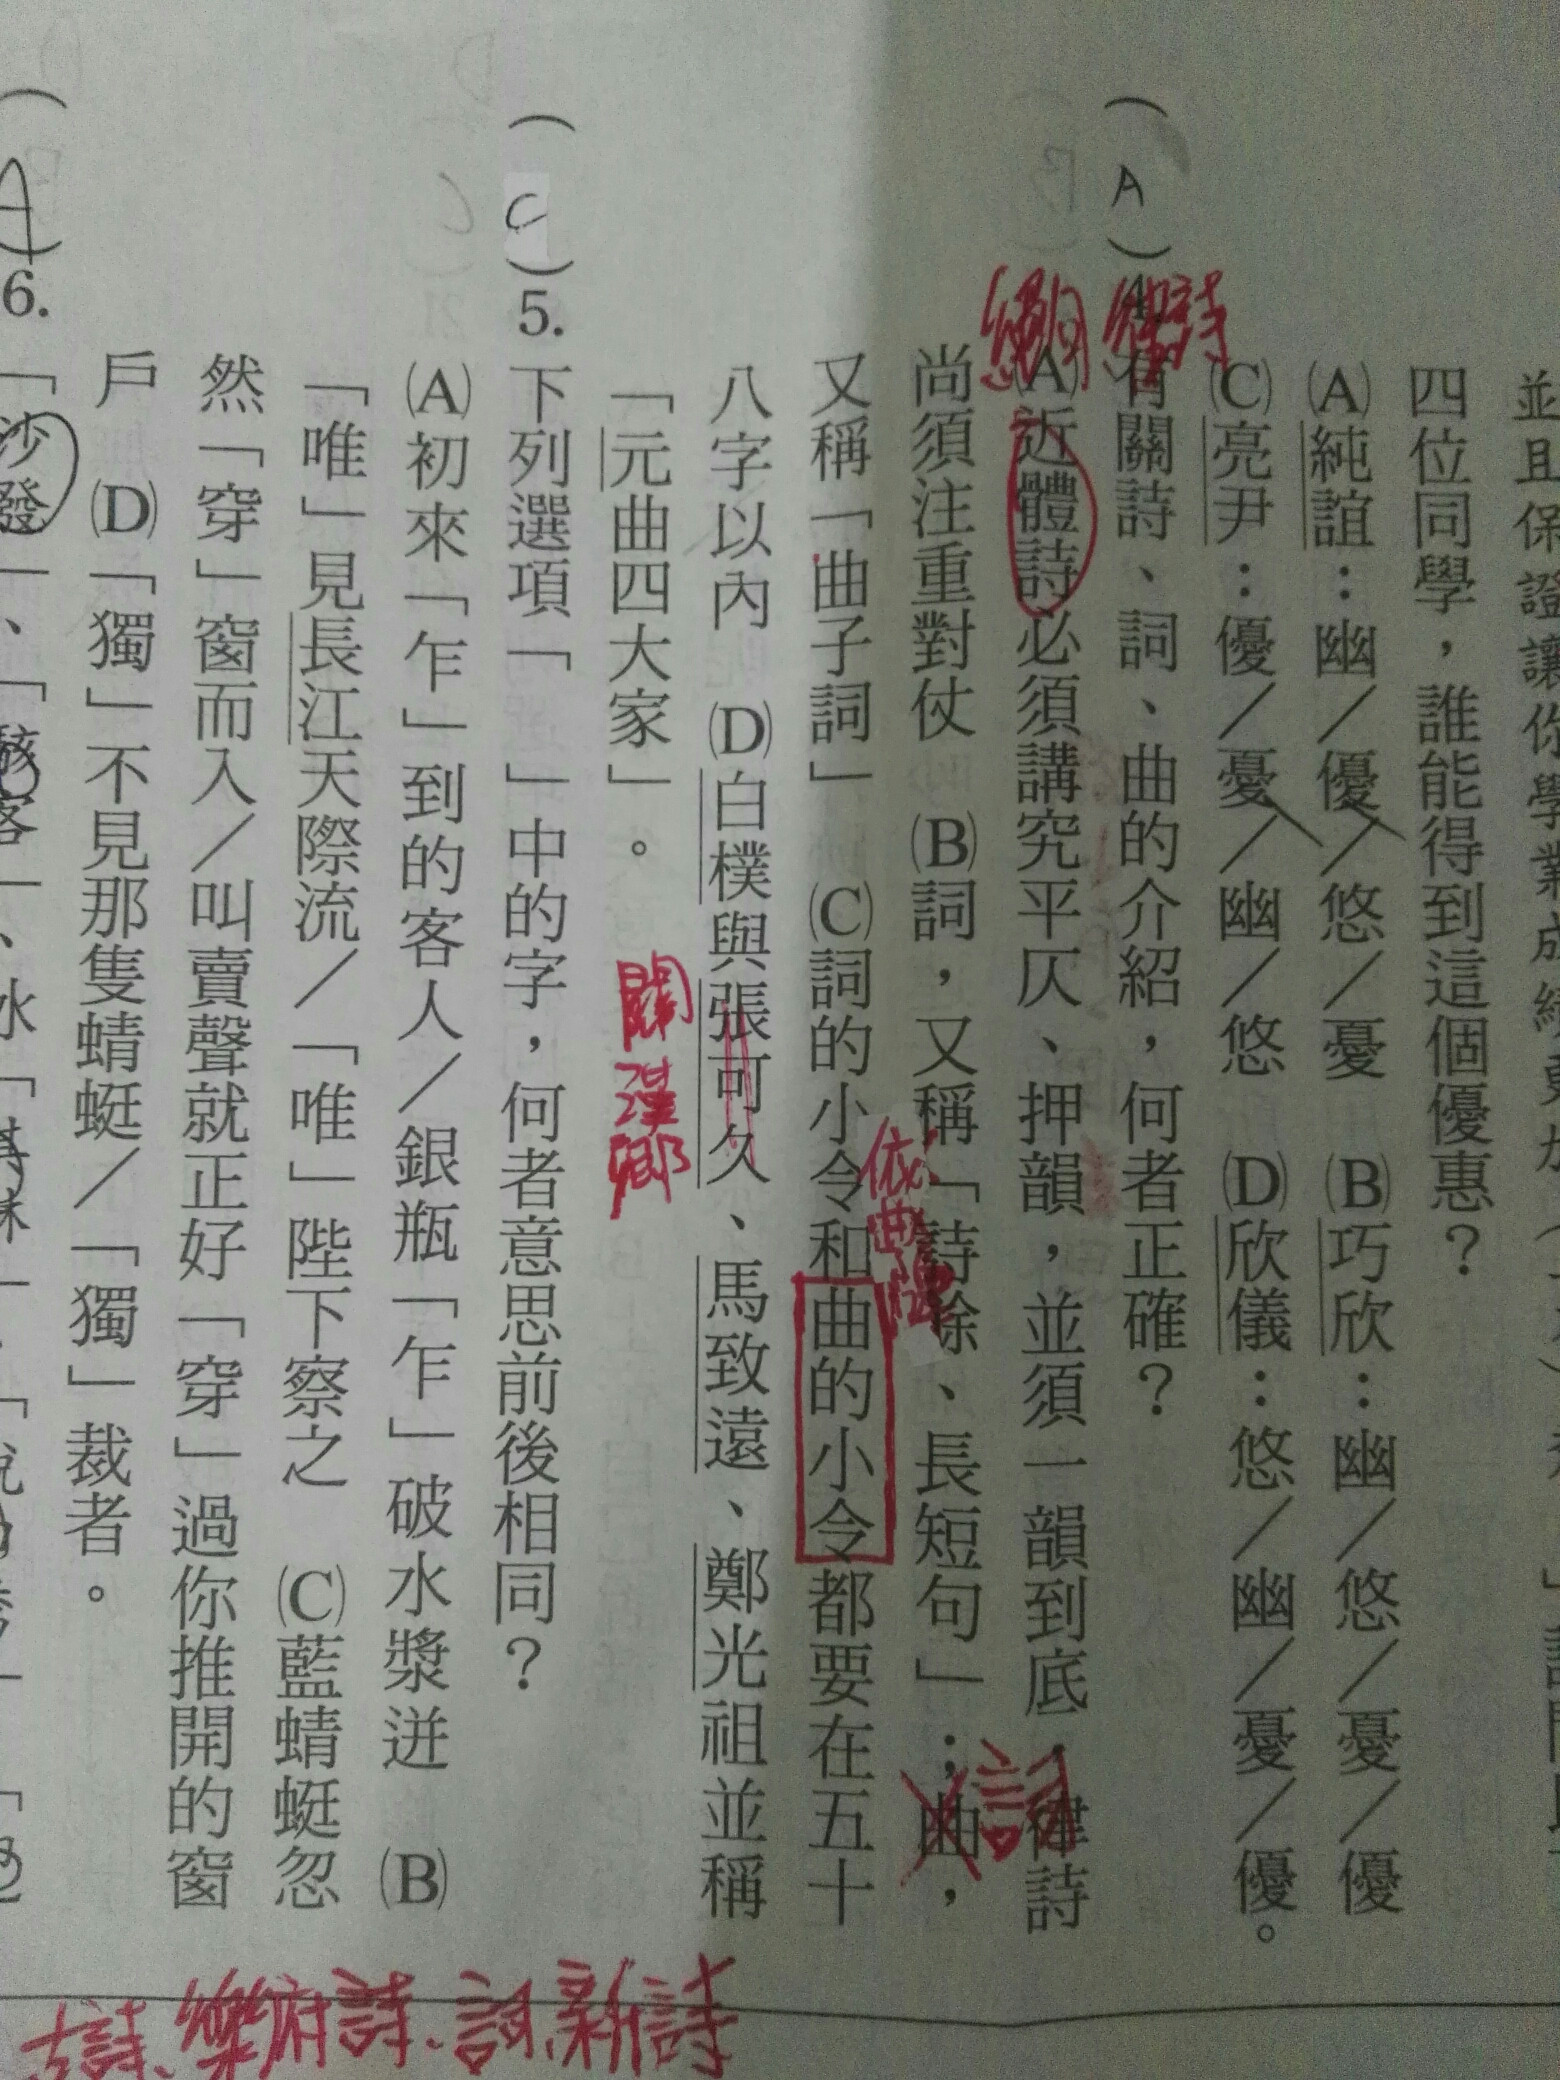 四位同學，誰能得到這個優惠？
(A)純誼：幽／優／悠／憂　(B)巧欣：幽／悠／憂／優
(C)亮尹：優／憂／幽／悠　(D)欣儀：悠／幽／憂／優。
(A)
律詩
有關詩、詞、曲的介紹，何者正確？
絕句
(A)近體詩必須講究平仄、押韻，並須一韻到底，律詩
詞
尚須注重對仗　(B)詞，又稱「詩餘、長短句」；曲，
依曲牌
又稱「曲子詞」　(C)詞的小令和曲的小令都要在五十
八字以內　(D)白樸與張可久、馬致遠、鄭光祖並稱
關漢卿
「元曲四大家」。
(C)5.下列選項「　」中的字，何者意思前後相同？
(A)初來「乍」到的客人／銀瓶「乍」破水漿迸　(B)
「唯」見長江天際流／「唯」陛下察之　(C)藍蜻蜓忽
然「穿」窗而入／叫賣聲就正好「穿」過你推開的窗
戶　(D)「獨」不見那隻蜻蜓／「獨」裁者。
(A)6.「沙發
古詩、樂府詩、詞、新詩